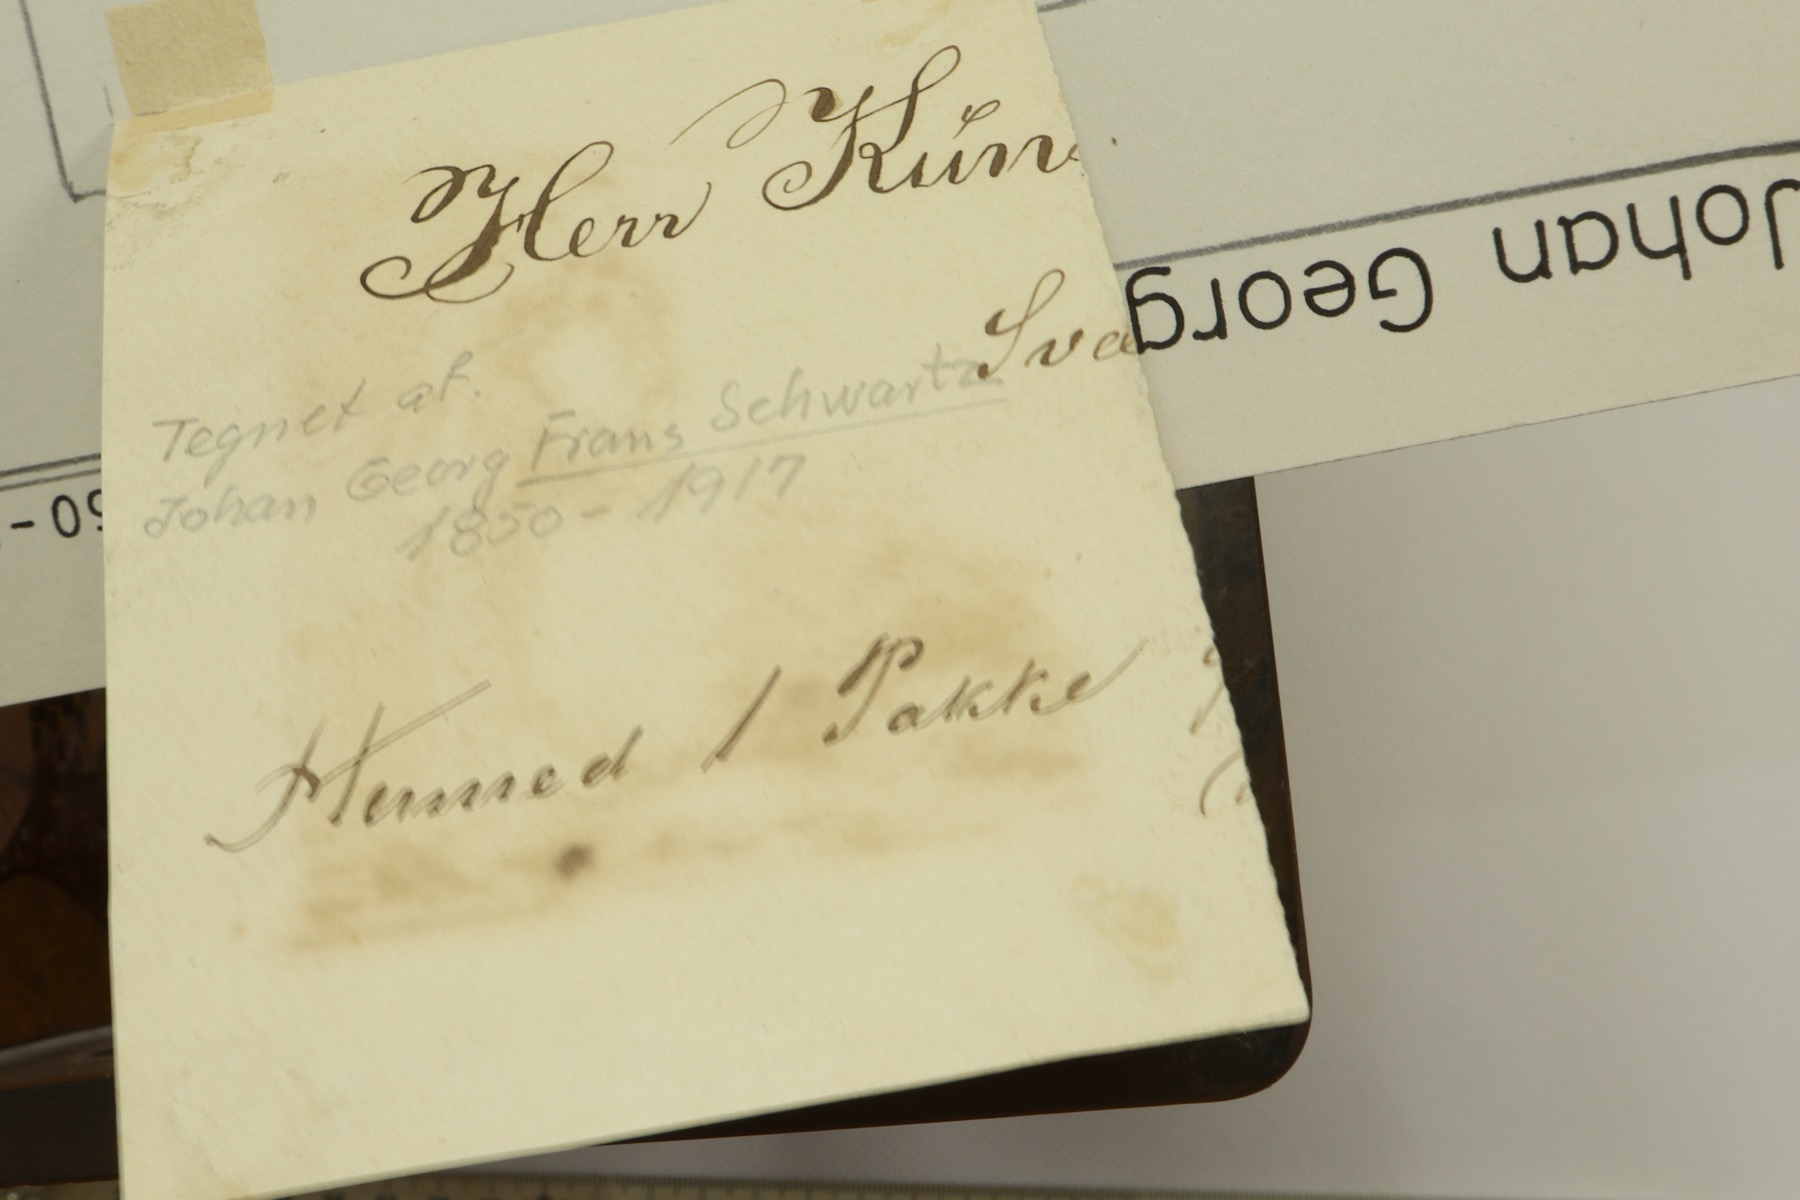 Herr Kün
Sva
Tegnet af.
Johan Georg Frans Schwartz
1850 - 1917
Hermed 1 Pakke
Johan Georg
50 -